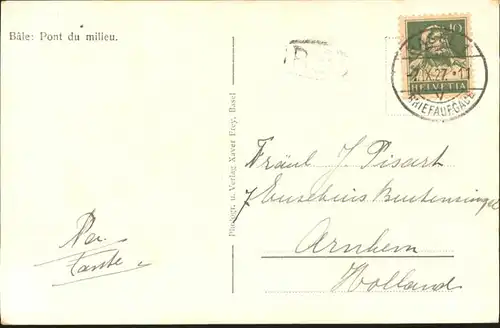 Bâle: Pont du milieu.
10
HELVETIA
IX.27.
BRIEFAUFGABE
Photogr. u. Verlag Xaver Frey, Basel
Fräul J. Pisart
7 Eusebius Buitensingel
Arnhem
Holland
Tante